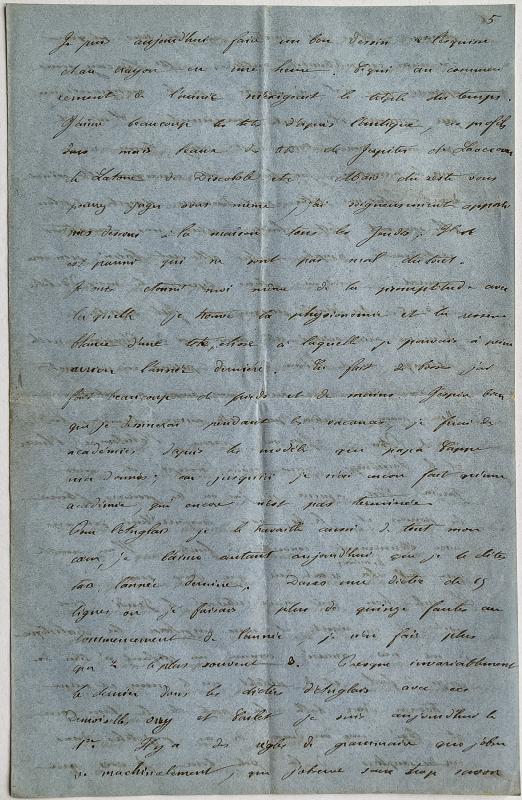 5
Je puis aujourd'hui faire un bon dessin esquisse
chau crayon en une heure. Depuis au commen
cement de l'année m'enseignent le temps.
J'aime beaucoup les têtes d'après l'antique, ces profils
durs mais beaux de tête de Jupiter de Laocoon
de Latone de Discobole etc. Mais du reste vous
pourrez juger vous même, j'ai soigneusement apporté
mes dessins à la maison tous les Jeudis. Il
est parmi qui ne sont pas mal du tout.
Je me étonne moi même de la promptitude avec
laquelle je trouve la physionomie et la ressem
blance d'une tête, chose à laquelle je pouvais à peine
arriver l'année dernière. En fait de bosse, j'ai
fait beaucoup de pieds et de mains. J'espère bien
que je dessinerai pendant les vacances, je ferai des
académies d'après les modèles que papa
m'a donnés: car jusqu'ici je n'ai encore fait qu'une
académie, qui encore n'est pas terminée.
Pour l'Anglais je le travaille aussi de tout mon
cœur, je l'aime autant aujourd'hui que je le détes
tais l'année dernière. Dans une dictée de 15
lignes où je faisais plus de quinze fautes au
commencement de l'année, je n'en fais plus
que 2 le plus souvent 3. Presque invariablement
le dernier dans les dictées d'Anglais avec ces
demoiselles et je suis aujourd'hui le
1er. Il y a des règles de grammaire que j'obser
ve machinalement, que j'observe sans trop savoir